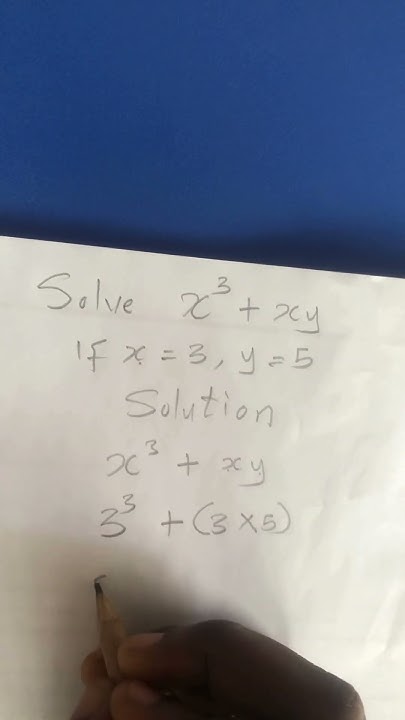 Solve x³ + xy
If x = 3, y = 5
Solution
x³ + xy
3³ + (3 × 5)